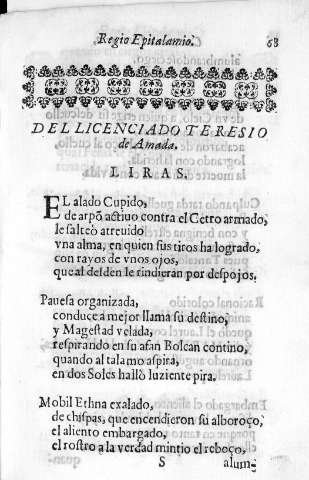 Regio Epitalamio. 68
DEL LICENCIADO TERESIO
de Amada.
LIRAS.
EL alado Cupido,
de arpõ actiuo contra el Cetro armado,
le salteò atreuido
vna alma, en quien sus tiros ha logrado,
con rayos de vnos ojos,
que al desden le rindieran por despojos.
Pauesa organizada,
conduce a mejor llama su destino,
y Magestad velada,
respirando en su afan Bolcan contino,
quando al talamo aspira,
en dos Soles hallò luziente pira.
Mobil Ethna exalado,
de chispas, que encendieron su alboroço,
el aliento embargado,
el rostro a la verdad mintio el reboço,
S alum-